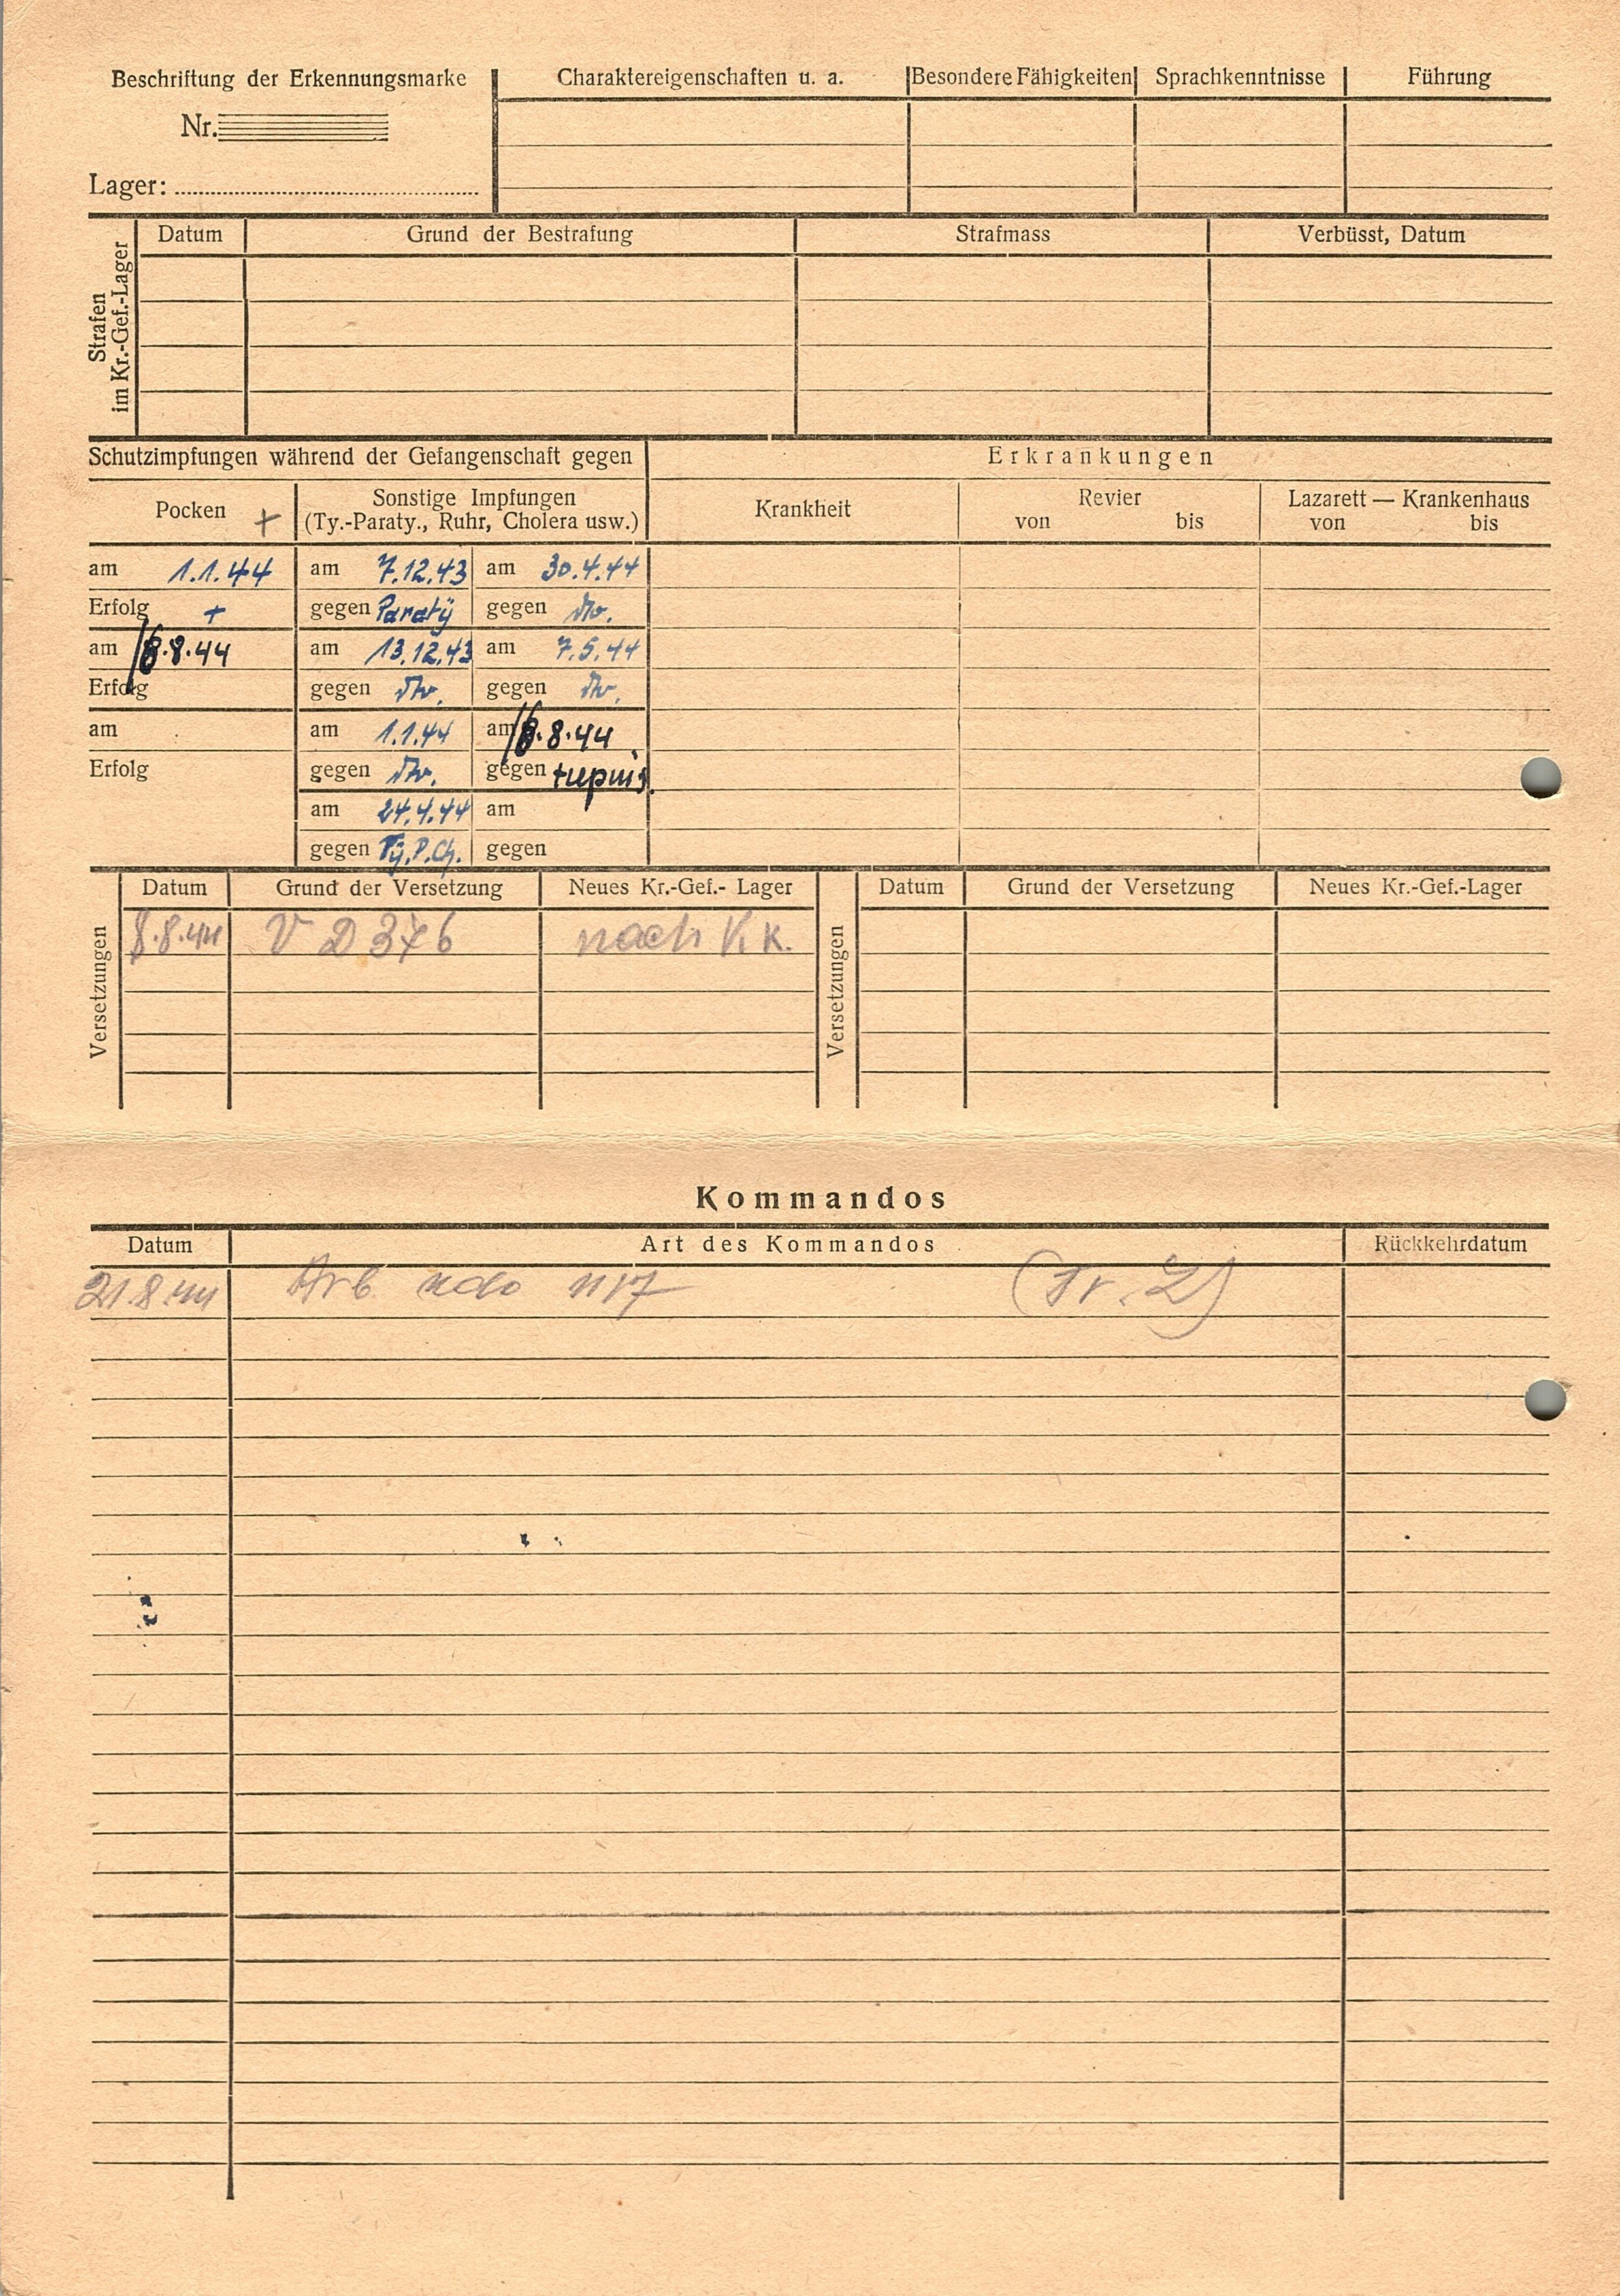 Beschriftung der Erkennungsmarke
Nr.
Lager:
Charaktereigenschaften u. a.
Besondere Fähigkeiten
Sprachkenntnisse
Führung
Strafen
im Kr.-Gef.-Lager
Datum
Grund der Bestrafung
Strafmass
Verbüsst, Datum
Schutzimpfungen während der Gefangenschaft gegen
Erkrankungen
Pocken +
Sonstige Impfungen
(Ty.-Paraty., Ruhr, Cholera usw.)
Krankheit
Revier
von bis
Lazarett — Krankenhaus
von bis
am 1.1.44 am 7.12.43 am 30.4.44
Erfolg + gegen Paratÿ gegen
am 8.8.44 am 13.12.43 am 7.5.44
Erfolg gegen gegen
am am 1.1.44 am 8.8.44
Erfolg gegen gegen
am 24.4.44 am
gegen Tÿ.P.Ch. gegen
Versetzungen
Datum Grund der Versetzung Neues Kr.-Gef.- Lager
8.8.44 V D 376 nach K.K.
Versetzungen
Datum Grund der Versetzung Neues Kr.-Gef.-Lager
Kommandos
Datum Art des Kommandos Rückkehrdatum
21.8.44 Arb 1117